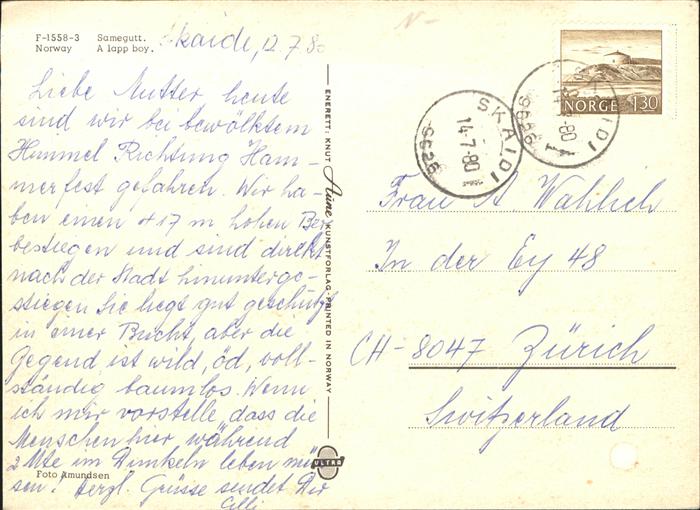 F-1558-3 Samegutt.
Norway A lapp boy.
Skaidi, 12.7.80
Liebe Mutter, heute
sind wir bei bewölktem
Himmel Richtung Ham-
merfest gefahren. Wir ha-
ben einen 417 m hohen Berg
bestiegen und sind direkt
nach der Stadt hinunterge-
stiegen. Sie liegt gut geschützt
in einer Bucht, aber die
Gegend ist wild, öd, voll-
ständig baumlos. Wenn
ich mir vorstelle, dass die
Menschen hier während
2 Mte im Dunkeln leben müs-
sen! Herzl. Grüsse sendet Dir
Cilli
Foto Amundsen
ENERETT: KNUT Aune KUNSTFORLAG - PRINTED IN NORWAY
ULTRA
NORGE 130
SKAIDI
14-7-80
9626
SKAIDI
14-7-80
9626
Frau A Wahlich
In der Ey 48
CH-8047 Zürich
Switzerland